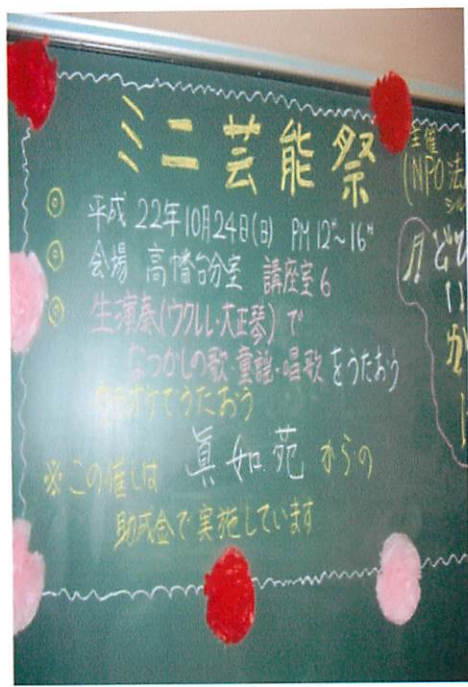 ミニ芸能祭
◎ 平成22年10月24日(日) PM 12°~16°
◎ 会場 高幡台分室 講座室6
◎ 生演奏(ウクレレ・大正琴)で
なつかしの歌・童謡・唱歌をうたおう
うたおう
※この催しは 眞如苑 からの
助成金で実施しています
主催
(NPO法
シル